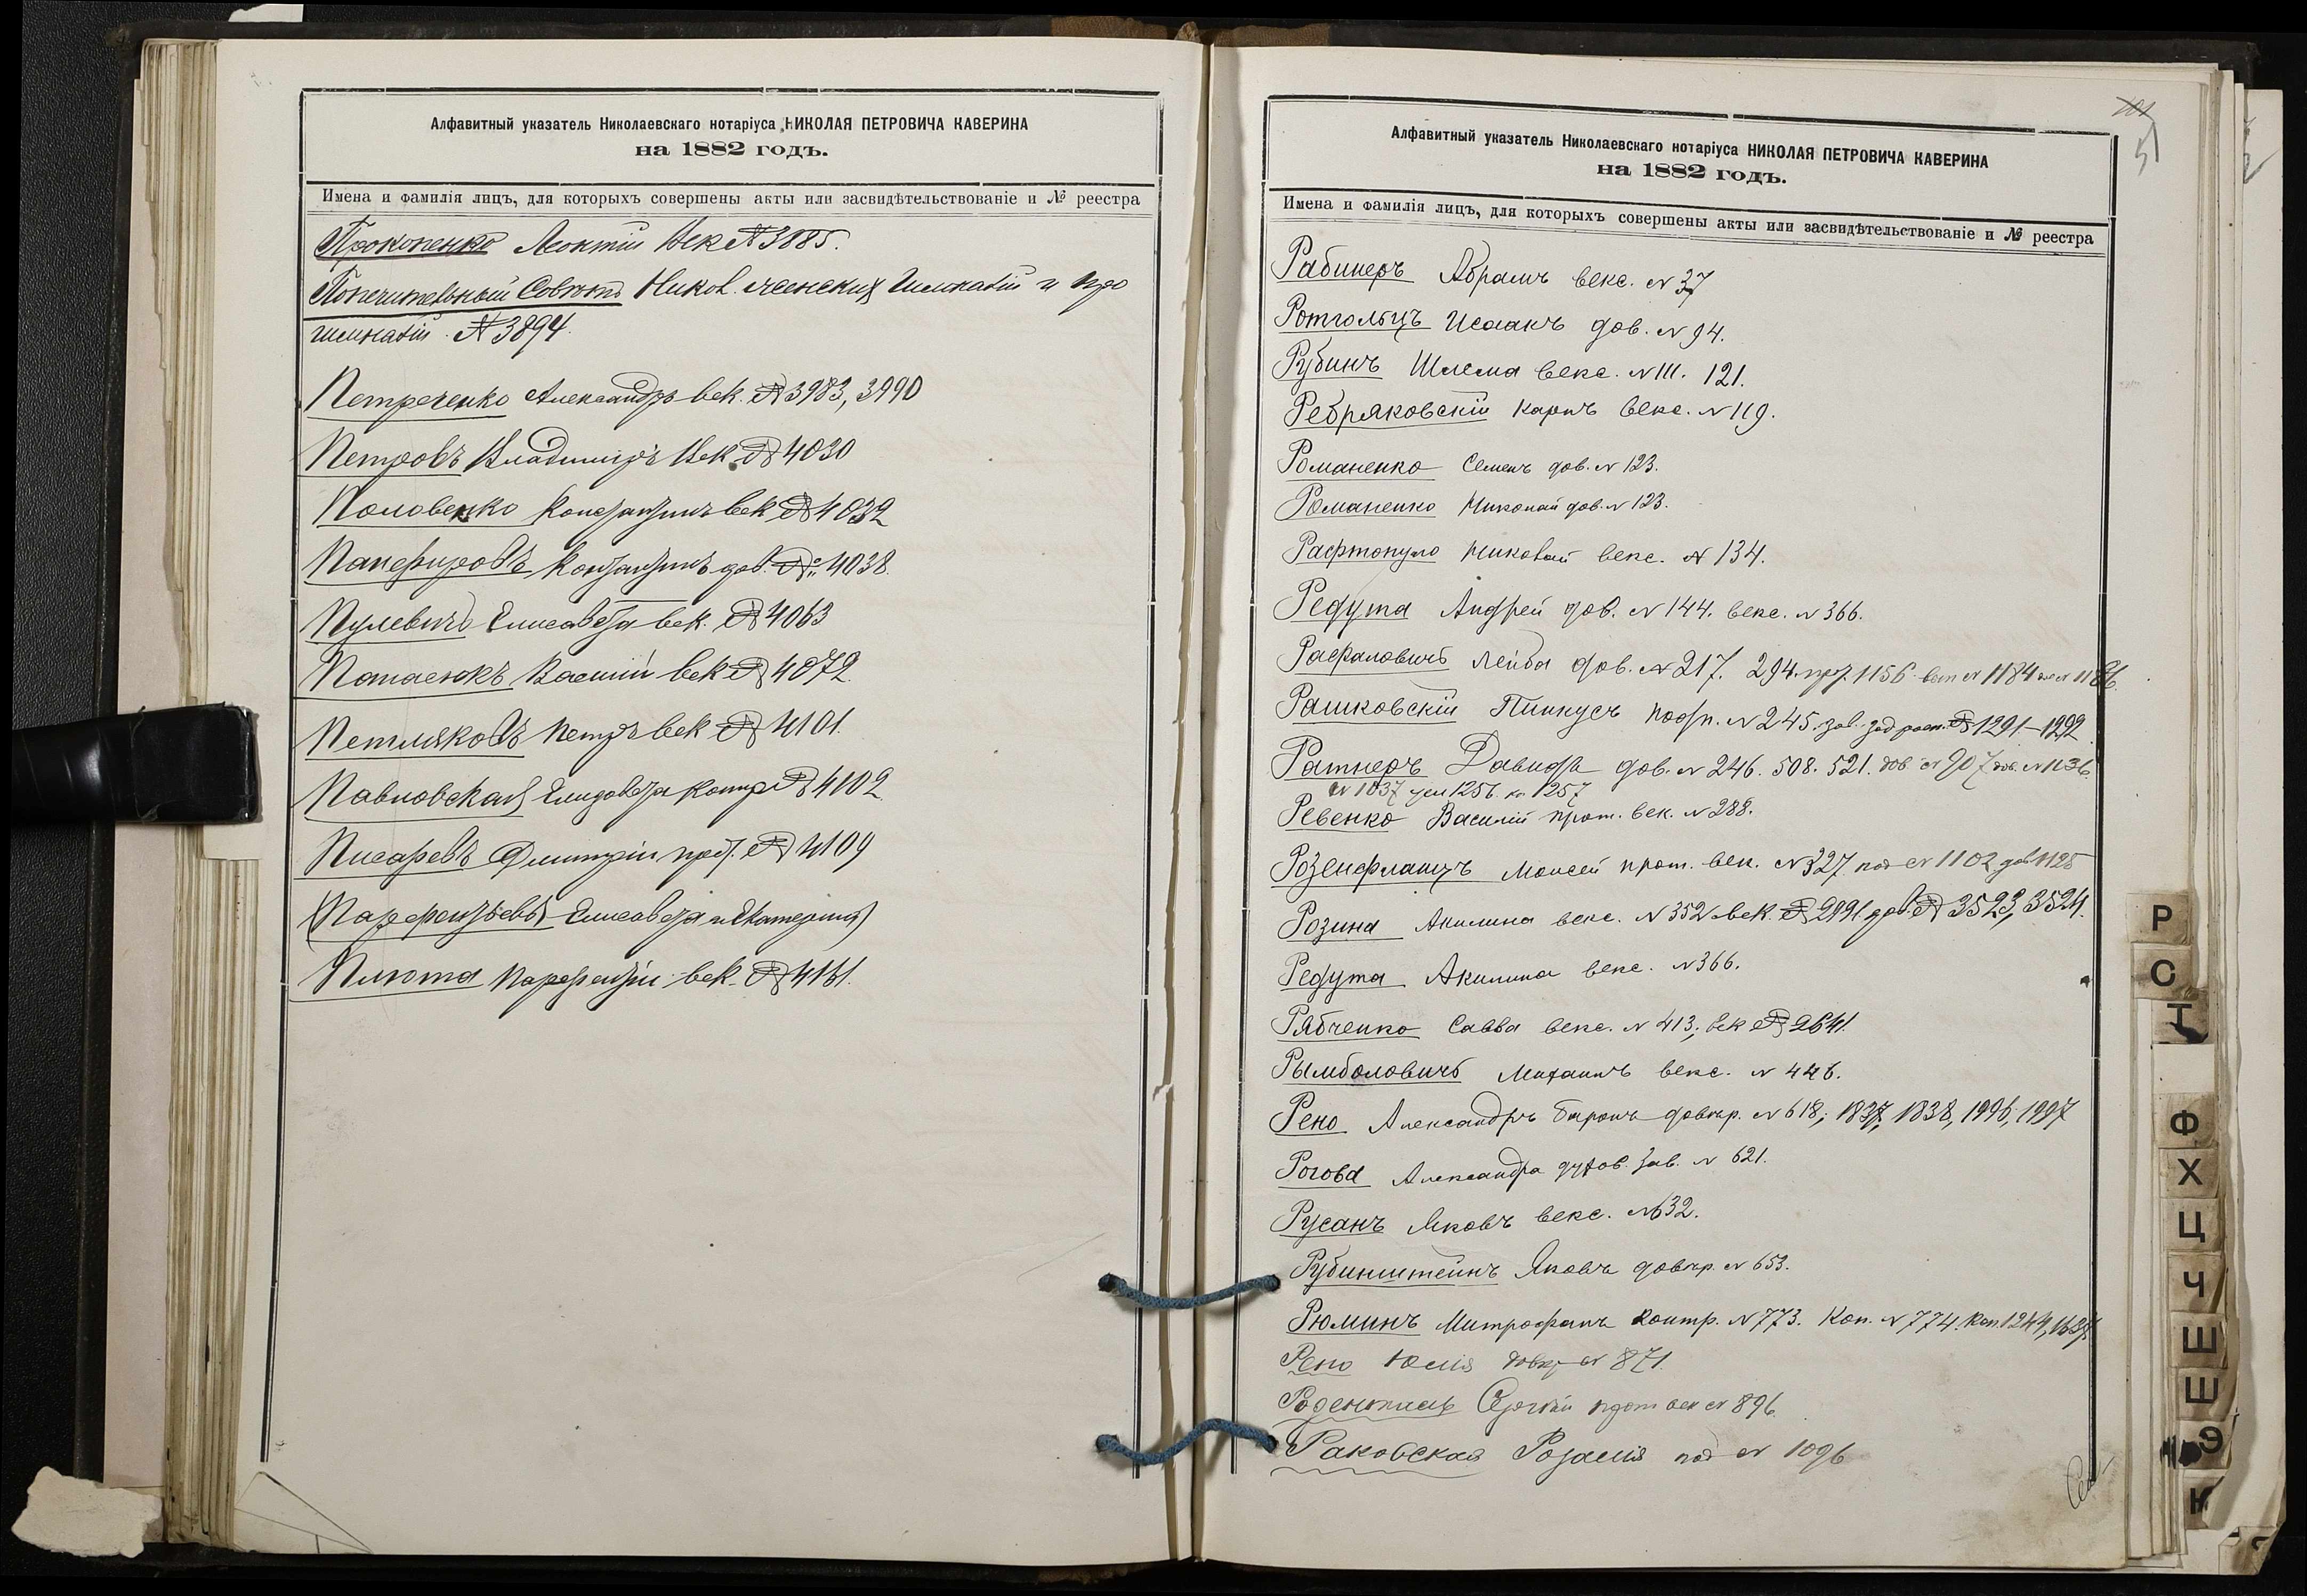 Алфавитный указатель Николаевскаго нотаріуса НИКОЛАЯ ПЕТРОВИЧА КАВЕРИНА
на 1882 годъ.
Имена и фамилія лицъ, для которыхъ совершены акты или засвидѣтельствованіе и № реестра
Прокопенко Леонтій Век № 3885.
Попечительный Совѣтъ Никол. женских Гимназій и про
гимназій № 3894.
Петреченко Александръ век. № 3983, 3990
Петровъ Владимиръ Век № 4030
Половенко Константинъ век № 4032
Панефировъ Констант. дов. № 4038.
Пулевичъ Елисавета век. № 4063
Потасюкъ Василій век № 4072.
Петляковъ Петръ век № 4101.
Павловская Елизавета контр № 4102
Писаревъ Дмитрій прот. № 4109
(Парфентьевы Елисавета и Екатерина)
Плюта Парфентій век. № 4161.
Алфавитный указатель Николаевскаго нотаріуса НИКОЛАЯ ПЕТРОВИЧА КАВЕРИНА
на 1882 годъ.
101
51
Имена и фамилія лицъ, для которыхъ совершены акты или засвидѣтельствованіе и № реестра
Рабинеръ Абрамъ векс. № 37
Ротгольцъ Исаакъ дов. № 94.
Рубинъ Шлема векс. № 111. 121.
Ребряковскій Карпъ векс. № 119.
Романенко Семенъ дов. № 123.
Романенко Николай дов. № 123.
Рафтопуло Николай векс. № 134.
Редута Андрей дов. № 144. векс. № 366.
Рафаловичъ Лейба дов. № 217. 294. 1156 № 1184 1186.
Рашковскій Пинкусъ подп. № 245. № 1291-1292
Ратнеръ Давидъ дов. № 246. 508. 521. дов № 907 дов. № 1036
№ 1037 1256. 1257
Ревенко Василій прот. век. № 288.
Розенфланцъ Моисей прот. век. № 327. под № 1102 дов 1125
Розина Акилина векс. № 352 век. № 2991 дов. № 3523, 3524.
Редута Акилина векс. № 366.
Рябченко Савва векс. № 413; век № 2641.
Рымболовичъ Михаилъ векс. № 446.
Рено Александръ баронъ довѣр. № 618; 1837, 1838, 1996, 1997
Рогова Александра духов. зав. № 621.
Русанъ Яковъ векс. № 632.
Рубинштейнъ Яковъ довѣр. № 653.
Рюминъ Митрофанъ контр. № 773. Коп. № 774. Коп. 1244,
Рено Юлія довѣр № 871.
Сергѣй прот век № 896.
Раковская Розалія под № 1096
Р
С
Т
Ф
Х
Ц
Ч
Ш
Щ
Э